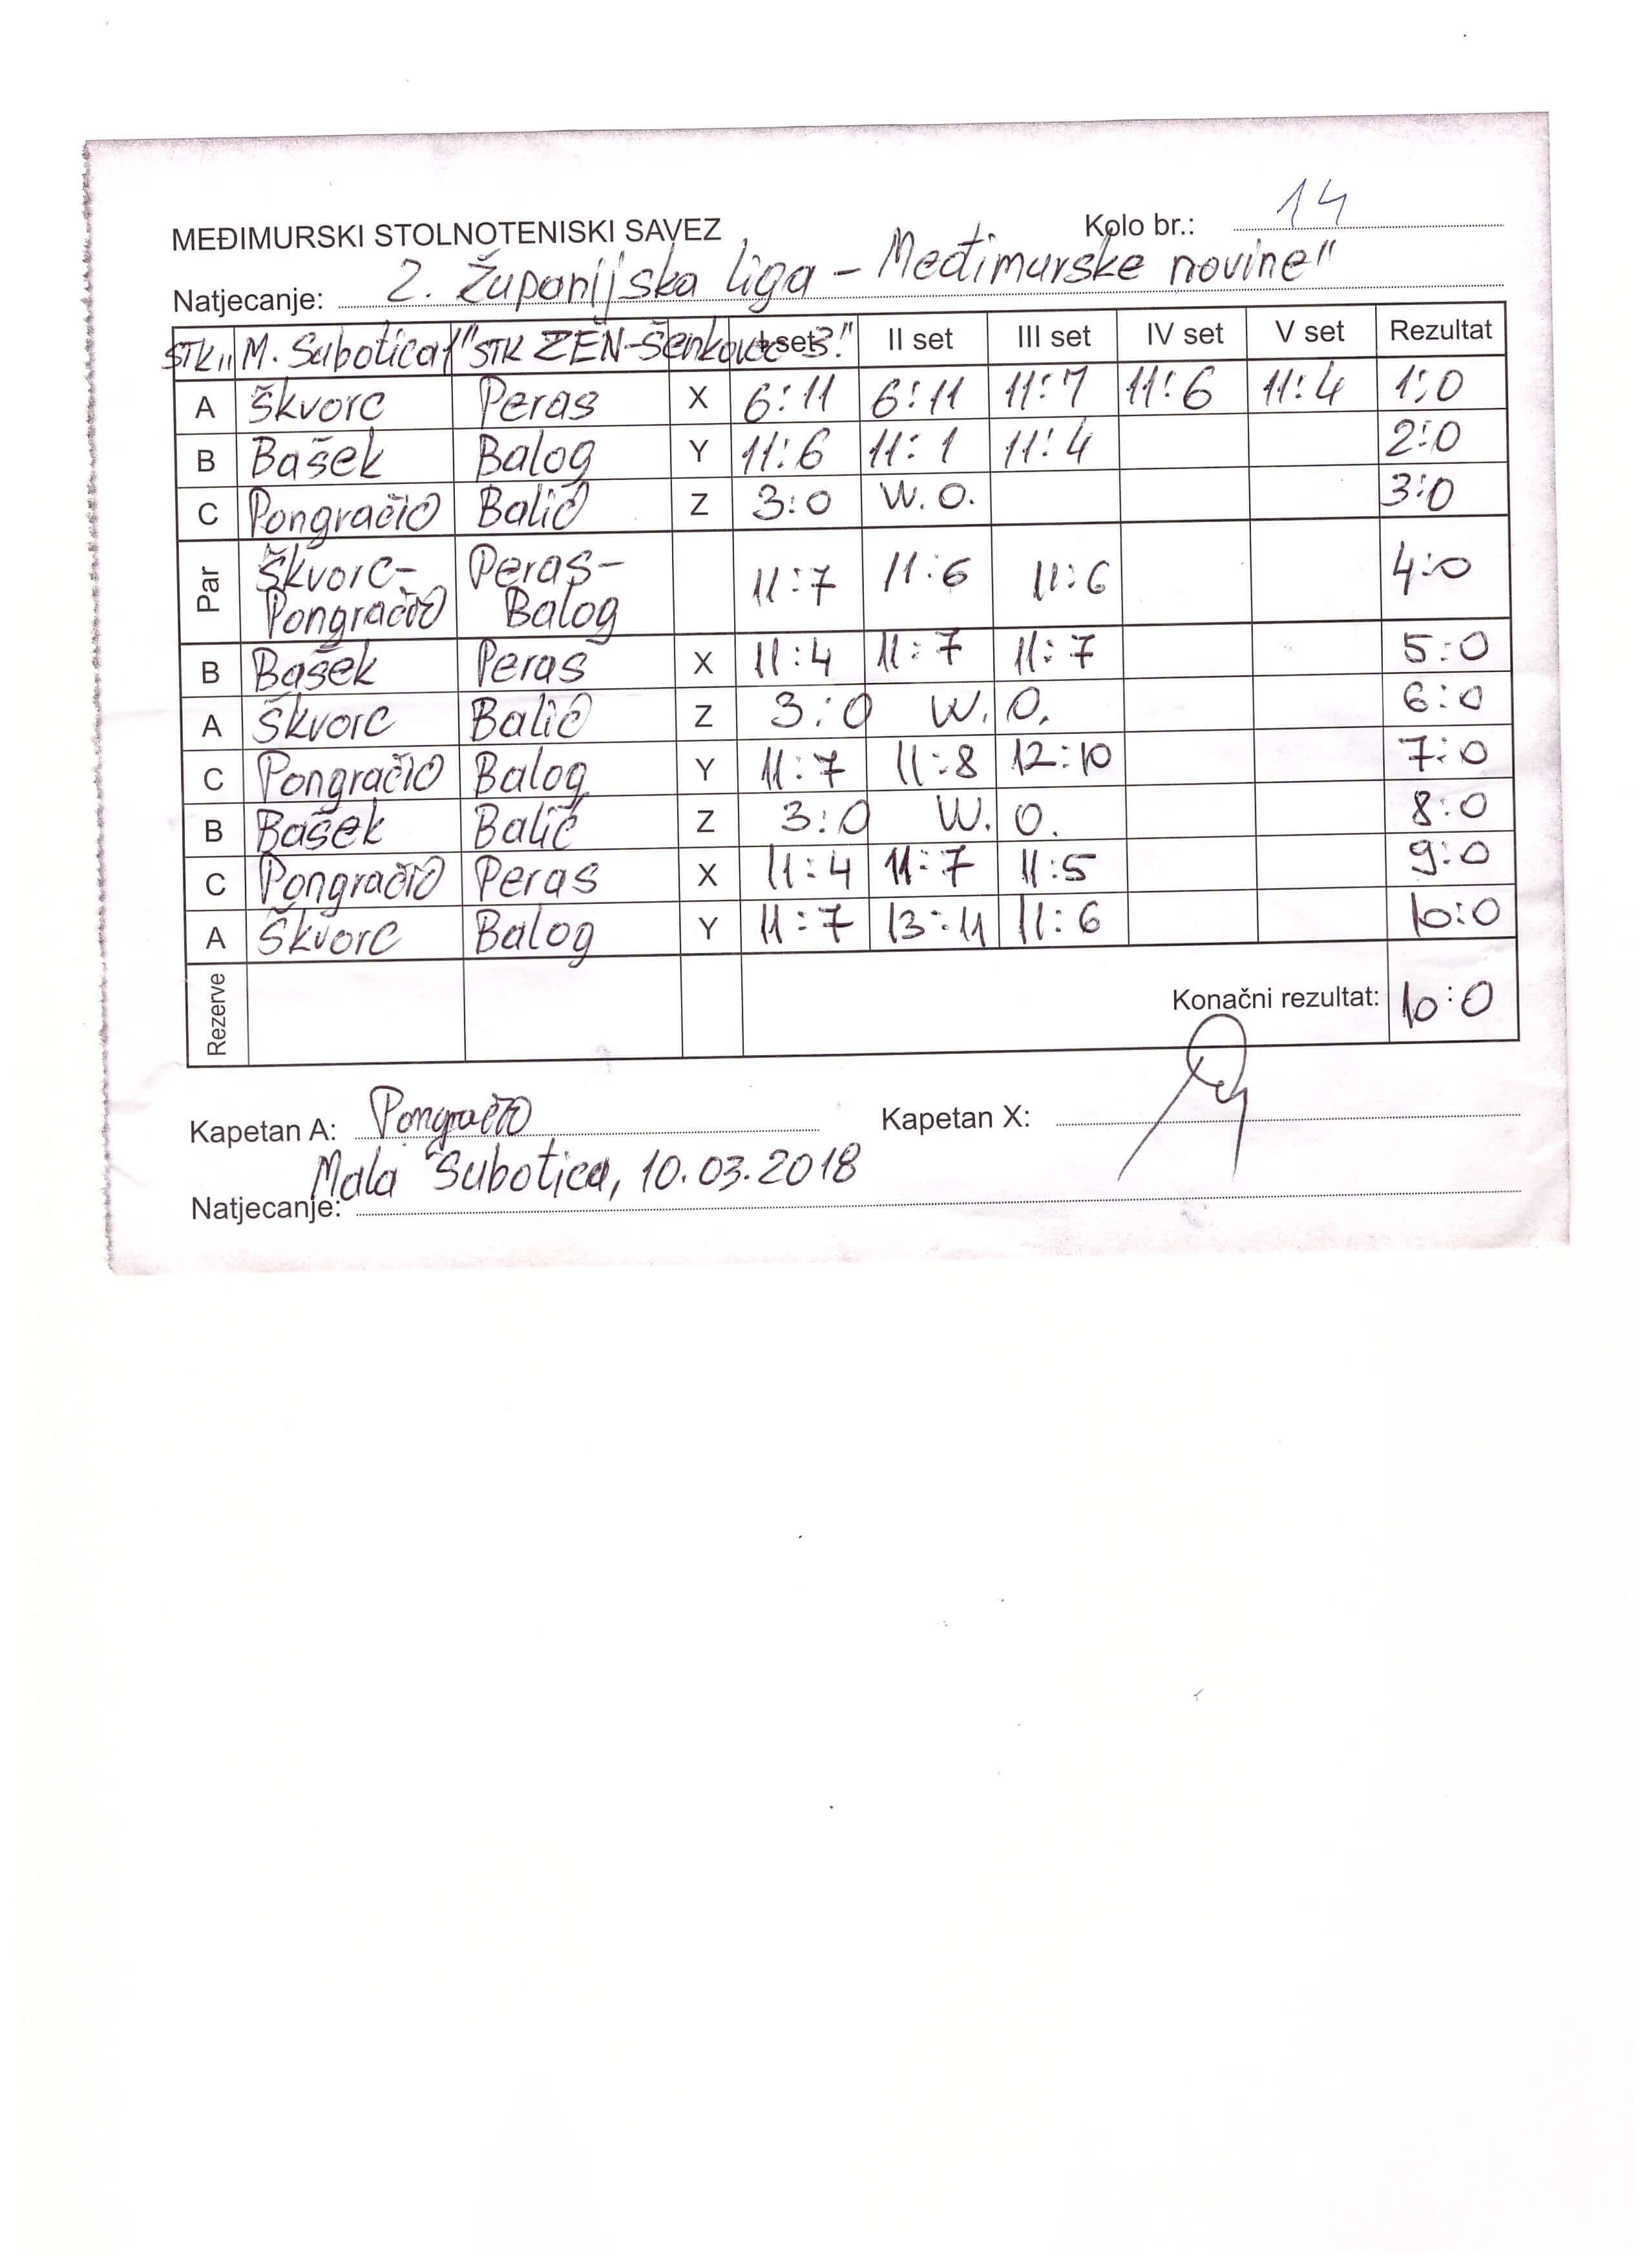 MEĐIMURSKI STOLNOTENISKI SAVEZ Kolo br.: 14
Natjecanje: 2. Županijska liga - Međimurske novine"
STK„ M. Subotica" "STK ZEN-Šenkovec 3." I set II set III set IV set V set Rezultat
A Škvorc Peras X 6:11 6:11 11:7 11:6 11:4 1:0
B Bašek Balog Y 11:6 11:1 11:4 2:0
C Pongračić Balić Z 3:0 W.O. 3:0
Par Škvorc- Peras- 11:7 11:6 11:6 4:0
Pongračić Balog
B Bašek Peras X 11:4 11:7 11:7 5:0
A Škvorc Balić Z 3:0 W.O. 6:0
C Pongračić Balog Y 11:7 11:8 12:10 7:0
B Bašek Balić Z 3:0 W.O. 8:0
C Pongračić Peras X 11:4 11:7 11:5 9:0
A Škvorc Balog Y 11:7 13:11 11:6 10:0
Rezerve Konačni rezultat: 10:0
Kapetan A: Pongračić Kapetan X:
Mala Subotica, 10.03.2018
Natjecanje: